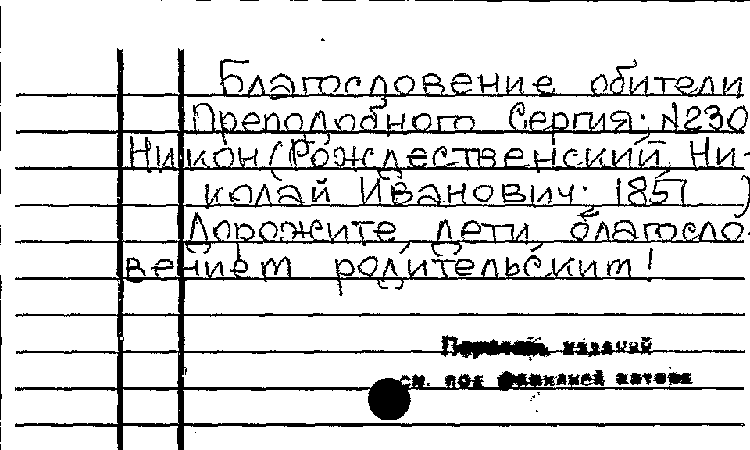 Благословение обители
Преподобного Сергия. №230
Никон (Рождественский, Ни-
колай Иванович. 1851   )
Дорожите, дети, благосло-
вением родительским!
Перечень изданий
см. под фамилией автора